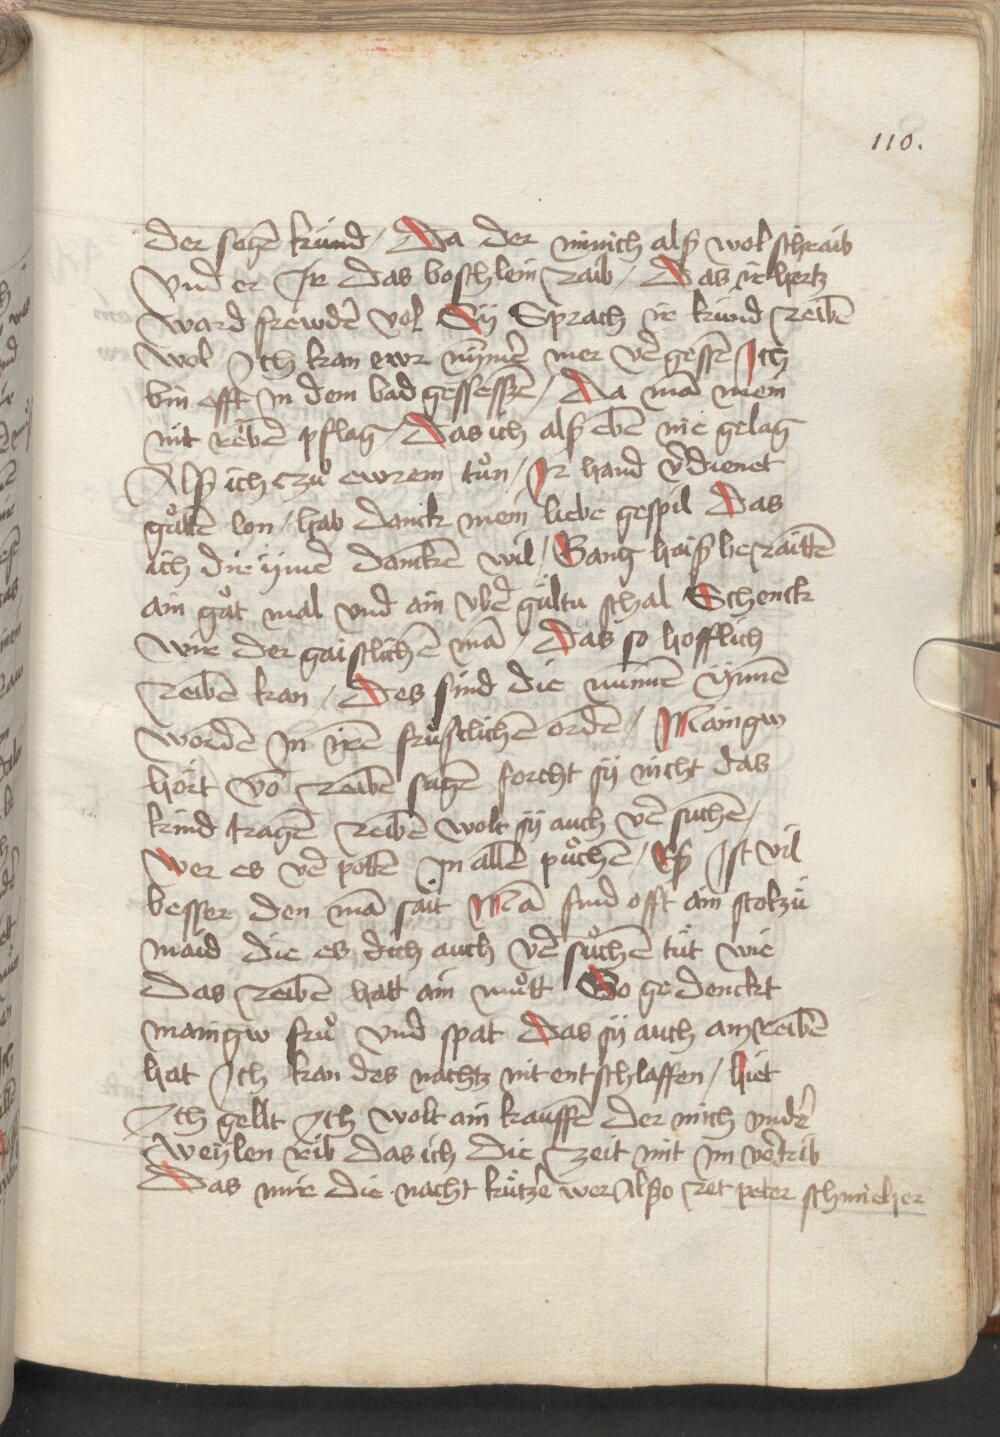 110.
der sehē kund / Da der münich alß wol schraib
Vnd er Ir das boschlein raib / Das ir hertz
ward frewdē vol Sÿ Sprach ir kund reibē
wol Ich kan ewr nÿmēr mer vēgessē Ich
bin offt in dem bad gesessē / Da mā mein
mit reibē pflag / Das ich alß ebē nie gelag
Alß ich czů ewrem tůn / Ir hand v̄dienet
gůttē lon / hab danck mein liebe gespil Das
ich dir ÿm̄ē danckē wil / Gang haiß beraittē
ain gůt mal vnd ain vbē gültū schal Schenck
wir der gaistlichē mā / Das so hofflich
reibē kan / Des sind die nunnē Innē
wordē in irē fruͤstlichē ordē / Maingw
hört vō reibē sagē forcht sÿ nicht das
kind tragē reibē wolt sÿ auch vē suchē /
wer es vē pottē In allē půchē / Eß Ist vil
besser den mā sait Mā find offt ain stoltzü
maid die es dich auch vē sůchē tůt wie
das reibē hatt ain můtt So gedenckt
maingw frů vnd spat Das sÿ auch am reibē
hat Ich kan des nachtz nit entschlaffen / hiet
Ich gellt Ich wolt ain kauffē der mich vndē
weÿlen rib das ich die zeit mit im vētrib
Das mir die nacht kürtzē wer Alßo ret peter schmieher